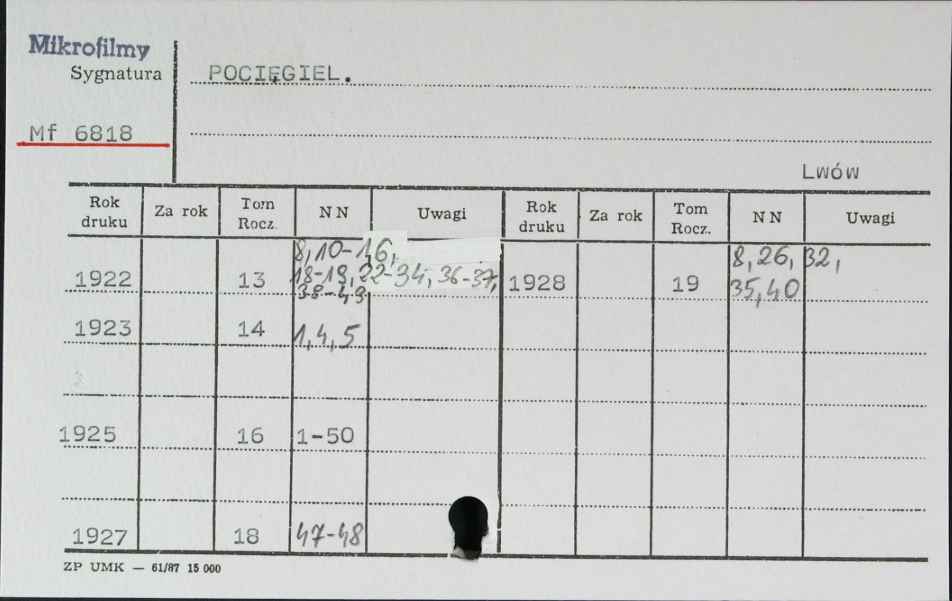 Mikrofilmy
Sygnatura
POCIĘGIEL.
Mf 6818
Lwów
Rok druku Za rok Tom Rocz. NN Uwagi Rok druku Za rok Tom Rocz. NN Uwagi
8,10-16, 8,26,32,
1922 13 18-19,22-34,36-37, 1928 19 35,40
38-49,
1923 14 1,4,5
1925 16 1-50
1927 18 47-48
ZP UMK — 61/87 15 000